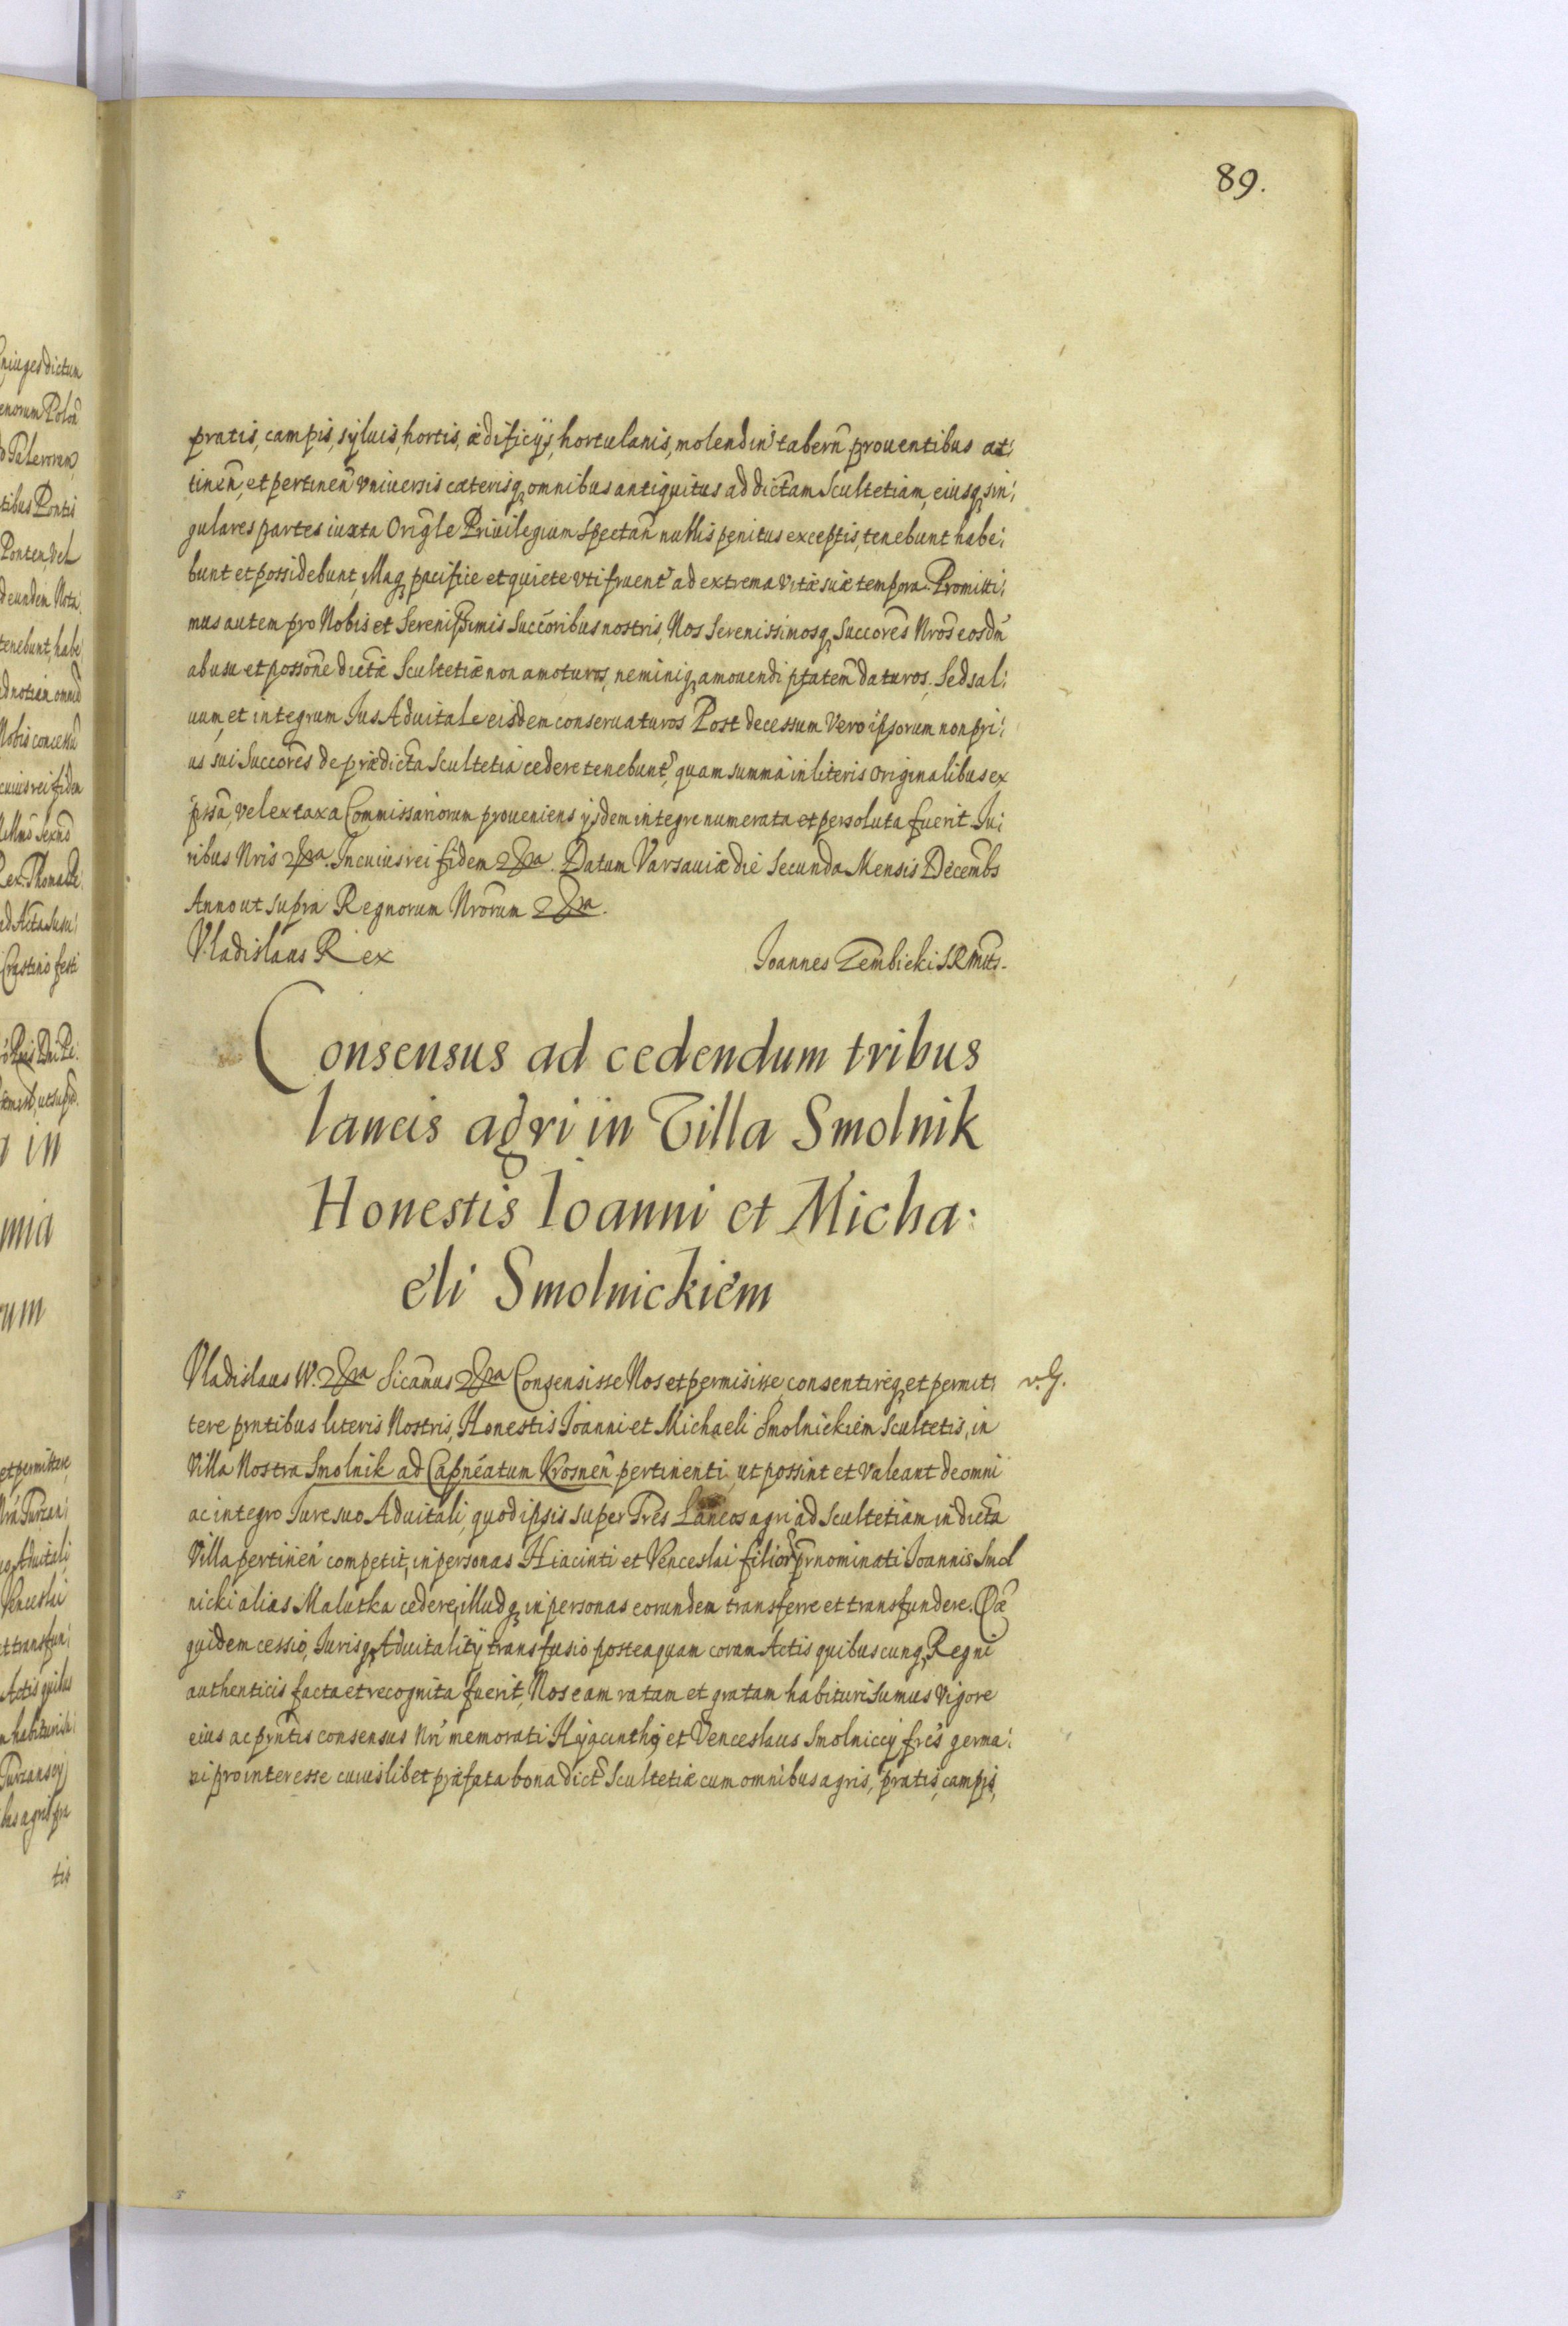 89.
pratis, campis, syluis, hortis, ædificijs, hortulanis, molendin̄ tabern̄ prouentibus at:
tinen̄, et pertinen̄ vniuersis cæterisq̨ omnibus antiquitus ad dictam Scultetiam, eiusq̨ sin:
gulares partes iuxta Orig̃le Priuilegium Spectan̄ nullis penitus exceptis, tenebunt habe:
bunt et possidebunt, illaq̨ pacifice et quiete vti fruent̃ ad extrema vitæ suæ tempora. Promitti:
mus autem pro Nobis et Serenissimis Succoribus nostris, Nos Serenissimosq̨ Succores̃ Nros̃ eosdm̃
ab usu et possone dictæ Scultetiæ non amoturos, neminiq̨ amouendi ptatem̃ daturos. Sed sal:
uum, et integrum Ius Aduitale eisdem conseruaturos Post decessum Vero ipsorum non pri:
us sui Succores̃ de prædicta Scultetia cedere tenebunt̃, quam summa in literis Originalibus ex
prsã, vel ex taxa Commissariorum proueniens ijsdem integre numerata et persoluta fuerit. Iu:
ribus Nris̃ &ra. In cuius rei fidem &ra. Datum Varsauiæ die Secunda Mensis Decembs
Anno ut supra Regnorum Nrorum &ra.
Vladislaus Rex Ioannes Gembicki S R Mtis.
Consensus ad cedendum tribus
laneis agri in Villa Smolnik
Honestis Ioanni et Micha:
eli Smolnickiem
Vladislaus IV. &ra Sicamus &ra Consensisse Nos et permisisse, consentireq̨ et permit: v. G.
tere pn̄tibus literis Nostris, Honestis Ioanni et Michaeli Smolnickiem Scultetis, in
Villa Nostra Smolnik ad Capneatum Krosnen̄ pertinenti, ut possint et valeant de omni
ac integro Iure suo Aduitali, quod ipsis super Tres Laneos agri ad Scultetiam in dicta
Villa pertinen̄ competit, in personas Hiacinti et Venceslai filior̃ prnominati Ioannis Smol
nicki alias Malutka cedere, illudq̨ in personas eorundem transferre et transfundere. Quæ
quidem cessio, Iurisq̨ Aduitalitij transfusio posteaquam coram Actis quibuscunq̨ Regni
authenticis facta et recognita fuerit, Nos eam ratam et gratam habituri sumus Vigore
eius ac pn̄tis consensus Nri̇̃ memorati Hyacinthg et Venceslaus Smolniccij frẽs germa:
ni pro interesse cuiuslibet præfata bona dict̃ Scultetiæ cum omnibus agris, pratis, campis,